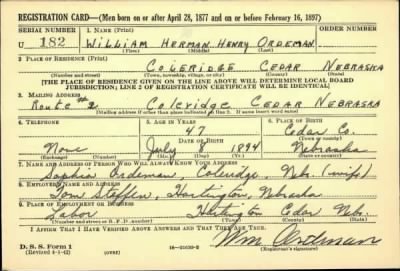 REGISTRATION CARD—(Men born on or after April 28, 1877 and on or before February 16, 1897)
SERIAL NUMBER 1. NAME (Print) ORDER NUMBER
U 182 WILLIAM HERMAN HENRY ORDEMAN
(First) (Middle) (Last)
2. PLACE OF RESIDENCE (Print)
COLERIDGE CEDAR NEBRASKA
(Number and street) (Town, township, village, or city) (County) (State)
[THE PLACE OF RESIDENCE GIVEN ON THE LINE ABOVE WILL DETERMINE LOCAL BOARD
JURISDICTION; LINE 2 OF REGISTRATION CERTIFICATE WILL BE IDENTICAL]
3. MAILING ADDRESS
Route #2 Coleridge CEDAR NEBRASKA
[Mailing address if other than place indicated on line 2. If same insert word same]
4. TELEPHONE 5. AGE IN YEARS 6. PLACE OF BIRTH
47 Cedar Co.
DATE OF BIRTH (Town or county)
None July 8 1894 Nebraska
(Exchange) (Number) (Mo.) (Day) (Yr.) (State or country)
7. NAME AND ADDRESS OF PERSON WHO WILL ALWAYS KNOW YOUR ADDRESS
Sophia Ordeman, Coleridge, Nebr. (wife)
8. EMPLOYER'S NAME AND ADDRESS
Tom Steffen, Hartington, Nebraska
9. PLACE OF EMPLOYMENT OR BUSINESS
Labor Hartington Cedar Nebr.
(Number and street or R. F. D. number) (Town) (County) (State)
I AFFIRM THAT I HAVE VERIFIED ABOVE ANSWERS AND THAT THEY ARE TRUE.
D. S. S. Form 1 Wm Ordeman
(Revised 4-1-42) (over) (Registrant's signature)